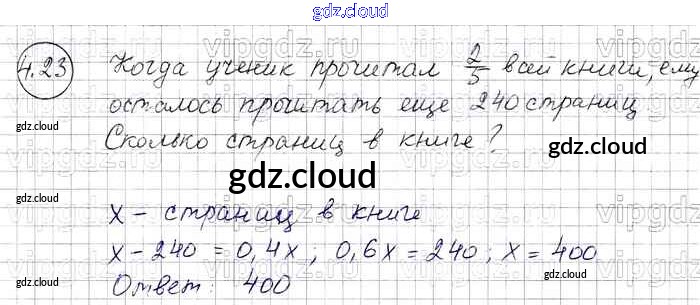 gdz.cloud
4.23 Когда ученик прочитал 2/5 всей книги, ему
осталось прочитать еще 240 страниц
gdz.cloud gdz.cloud
Сколько страниц в книге?
gdz.cloud
x - страниц в книге
x - 240 = 0,4x ; 0,6x = 240 ; x = 400
gdz.cloud gdz.cloud
Ответ: 400
gdz.cloud